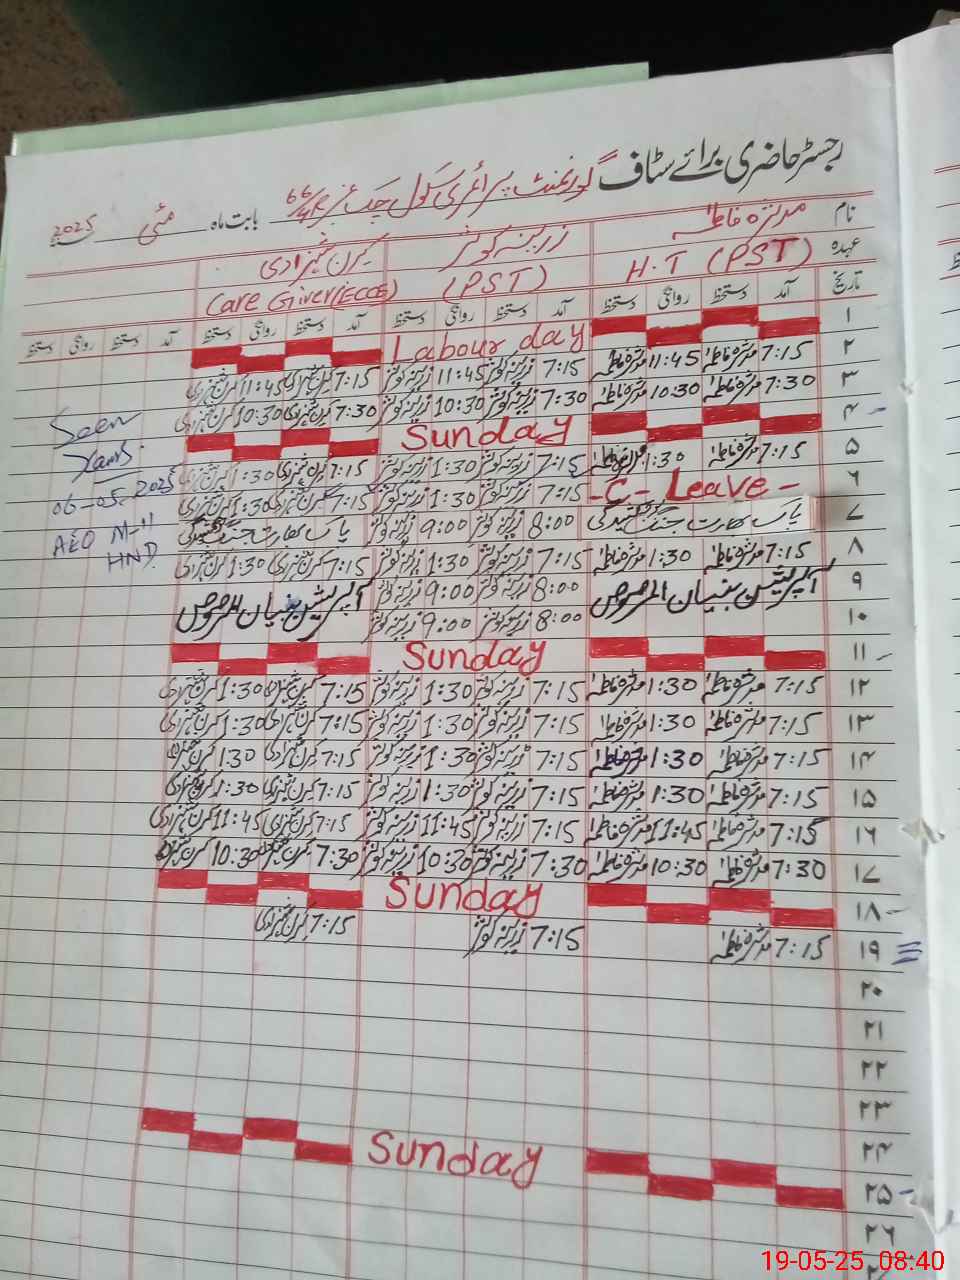 رجسٹر حاضری برائے سٹاف گورنمنٹ پرائمری سکول چک نمبر 66/4R بابت ماہ مئی 2025
نام مدثرہ فاطمہ زرینہ کوثر کرن شہزادی
عہدہ H.T (PST) (PST) Care Giver (ECCE)
تاریخ آمد دستخط روانگی دستخط آمد دستخط روانگی دستخط آمد دستخط روانگی دستخط آمد دستخط روانگی دستخط
۱ Labour day
۲ 7:15 مدثرہ فاطمہ 11:45 مدثرہ فاطمہ 7:15 زرینہ کوثر 11:45 زرینہ کوثر 7:15 کرن شہزادی 11:45 کرن شہزادی
۳ 7:30 مدثرہ فاطمہ 10:30 مدثرہ فاطمہ 7:30 زرینہ کوثر 10:30 زرینہ کوثر 7:30 کرن شہزادی 10:30 کرن شہزادی
۴ Sunday
۵ 7:15 مدثرہ فاطمہ 1:30 مدثرہ فاطمہ 7:15 زرینہ کوثر 1:30 زرینہ کوثر 7:15 کرن شہزادی 1:30 کرن شہزادی
۶ - C - Leave - 7:15 زرینہ کوثر 1:30 زرینہ کوثر 7:15 کرن شہزادی 1:30 کرن شہزادی
۷ پاک بھارت جنگ کشیدگی 8:00 زرینہ کوثر 9:00 زرینہ کوثر پاک بھارت جنگ کشیدگی
۸ 7:15 مدثرہ فاطمہ 1:30 مدثرہ فاطمہ 7:15 زرینہ کوثر 1:30 زرینہ کوثر 7:15 کرن شہزادی 1:30 کرن شہزادی
۹ آپریشن بنیان المرصوص 8:00 زرینہ کوثر 9:00 زرینہ کوثر آپریشن بنیان المرصوص
۱۰ 8:00 زرینہ کوثر 9:00 زرینہ کوثر
۱۱ Sunday
۱۲ 7:15 مدثرہ فاطمہ 1:30 مدثرہ فاطمہ 7:15 زرینہ کوثر 1:30 زرینہ کوثر 7:15 کرن شہزادی 1:30 کرن شہزادی
۱۳ 7:15 مدثرہ فاطمہ 1:30 مدثرہ فاطمہ 7:15 زرینہ کوثر 1:30 زرینہ کوثر 7:15 کرن شہزادی 1:30 کرن شہزادی
۱۴ 7:15 مدثرہ فاطمہ 1:30 مدثرہ فاطمہ 7:15 زرینہ کوثر 1:30 زرینہ کوثر 7:15 کرن شہزادی 1:30 کرن شہزادی
۱۵ 7:15 مدثرہ فاطمہ 1:30 مدثرہ فاطمہ 7:15 زرینہ کوثر 1:30 زرینہ کوثر 7:15 کرن شہزادی 1:30 کرن شہزادی
۱۶ 7:15 مدثرہ فاطمہ 11:45 مدثرہ فاطمہ 7:15 زرینہ کوثر 11:45 زرینہ کوثر 7:15 کرن شہزادی 11:45 کرن شہزادی
۱۷ 7:30 مدثرہ فاطمہ 10:30 مدثرہ فاطمہ 7:30 زرینہ کوثر 10:30 زرینہ کوثر 7:30 کرن شہزادی 10:30 کرن شہزادی
۱۸ Sunday
۱۹ 7:15 مدثرہ فاطمہ 7:15 زرینہ کوثر 7:15 کرن شہزادی
۲۰
۲۱
۲۲
۲۳
۲۴
۲۵ Sunday
۲۶
Seen
06-05-2025
AEO M-II
HND
19-05-25 08:40